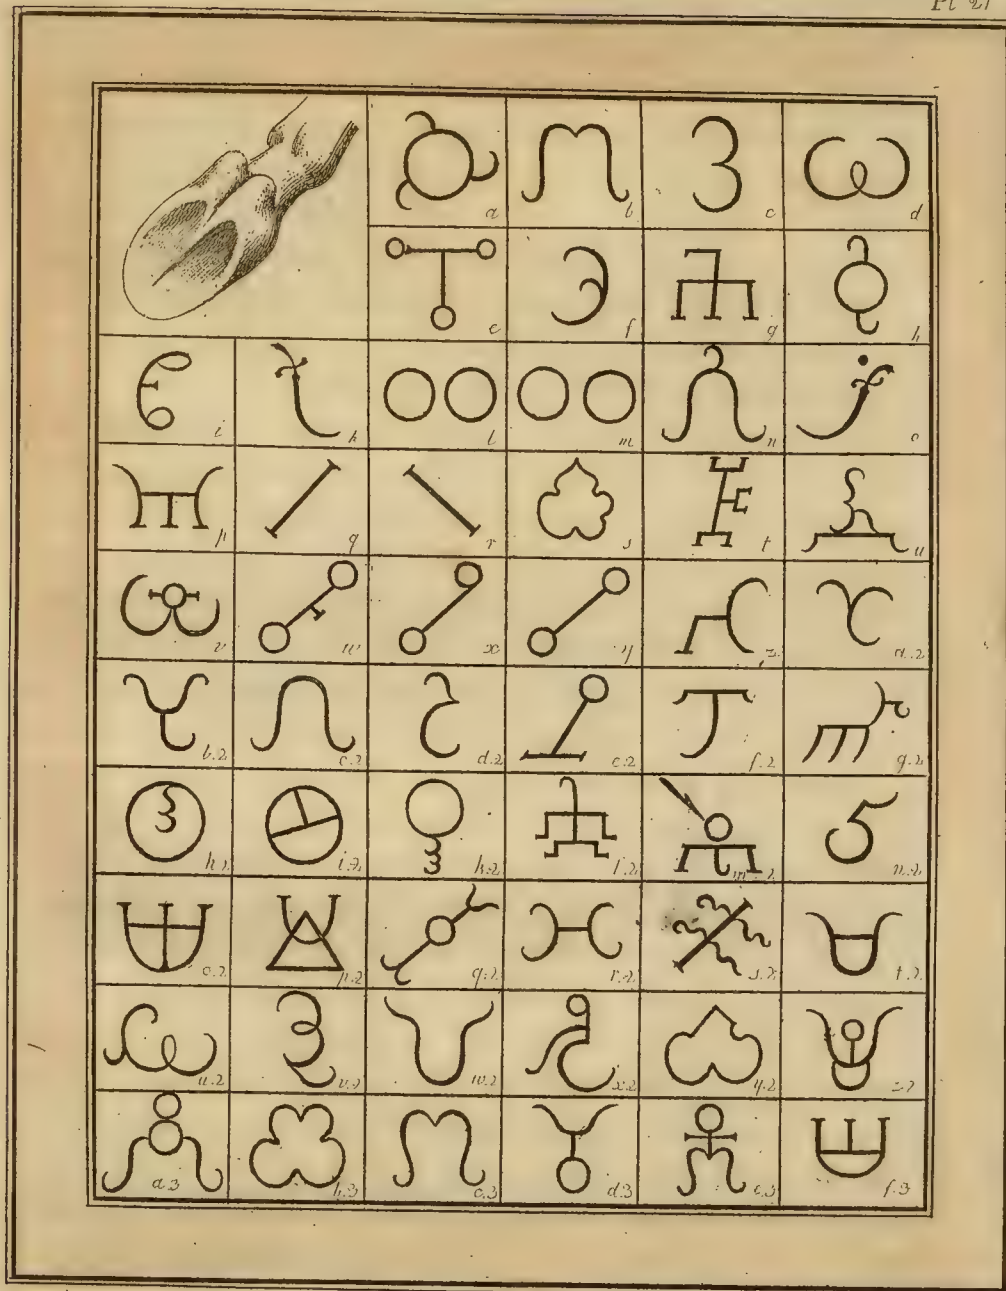 Pl 21
a b c d
e f g h
i k l m n o
p q r s t u
v w x y z a.2
b.2 c.2 d.2 e.2 f.2 g.2
h.2 i.2 k.2 l.2 m.2 n.2
o.2 p.2 q.2 r.2 s.2 t.2
u.2 v.2 w.2 x.2 y.2 z.2
a.3 b.3 c.3 d.3 e.3 f.3